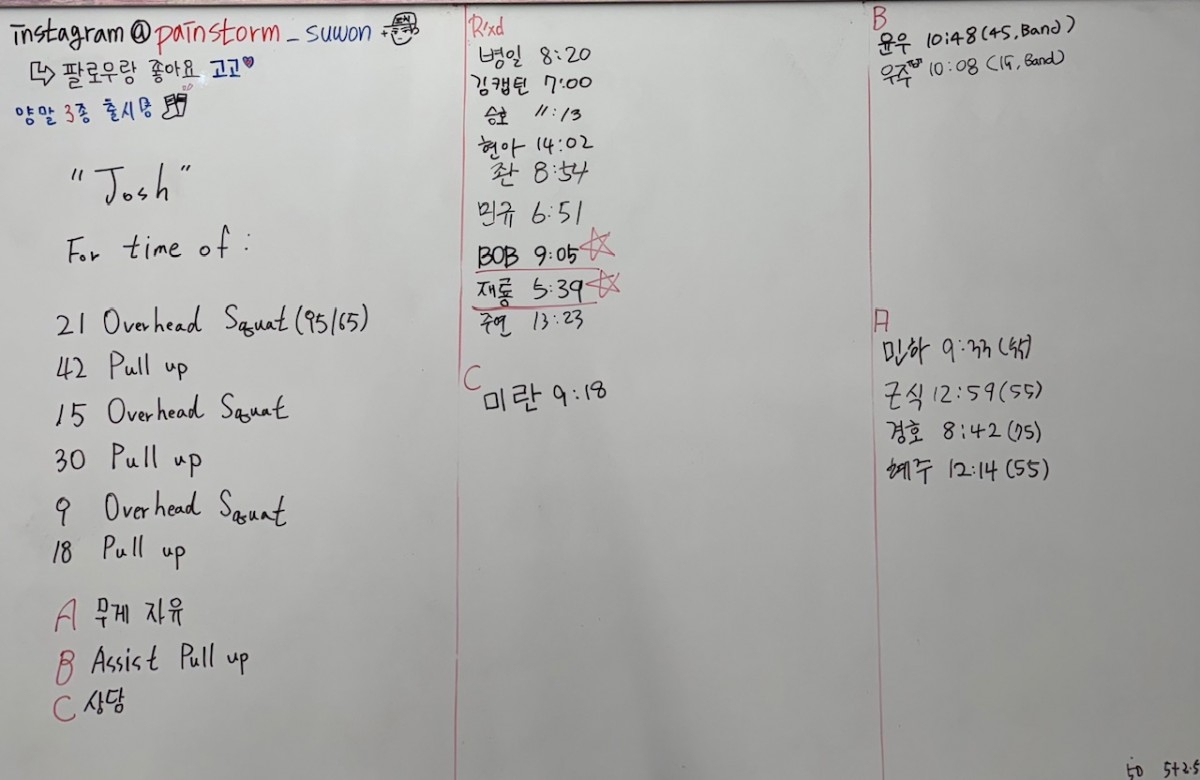 instagram @painstorm_suwon
팔로우랑 좋아요 고고
양말 3종 출시중
"Josh"
For time of:
21 Overhead Squat (95/65)
42 Pull up
15 Overhead Squat
30 Pull up
9 Overhead Squat
18 Pull up
A 무게 자유
B Assist Pull up
C 상담
R'xd
병일 8:20
김캡틴 7:00
승호 11:13
현아 14:02
좐 8:54
민규 6:51
BOB 9:05
재룡 5:39
주연 13:23
C
미란 9:18
B
윤우 10:48 (45, Band)
우주 10:08 (15, Band)
A
민하 9:33
근식 12:59 (55)
경호 8:42 (75)
혜주 12:14 (55)
50 5+2.5